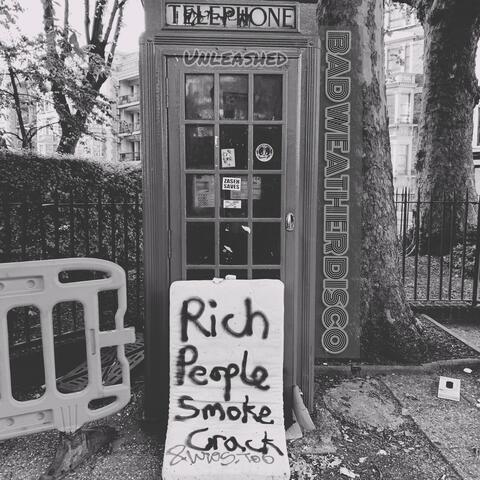 TELEPHONE
UNLEASHED
BADWEATHERDISCO
ZASEK
SAVES
Rich
People
Smoke
Crack